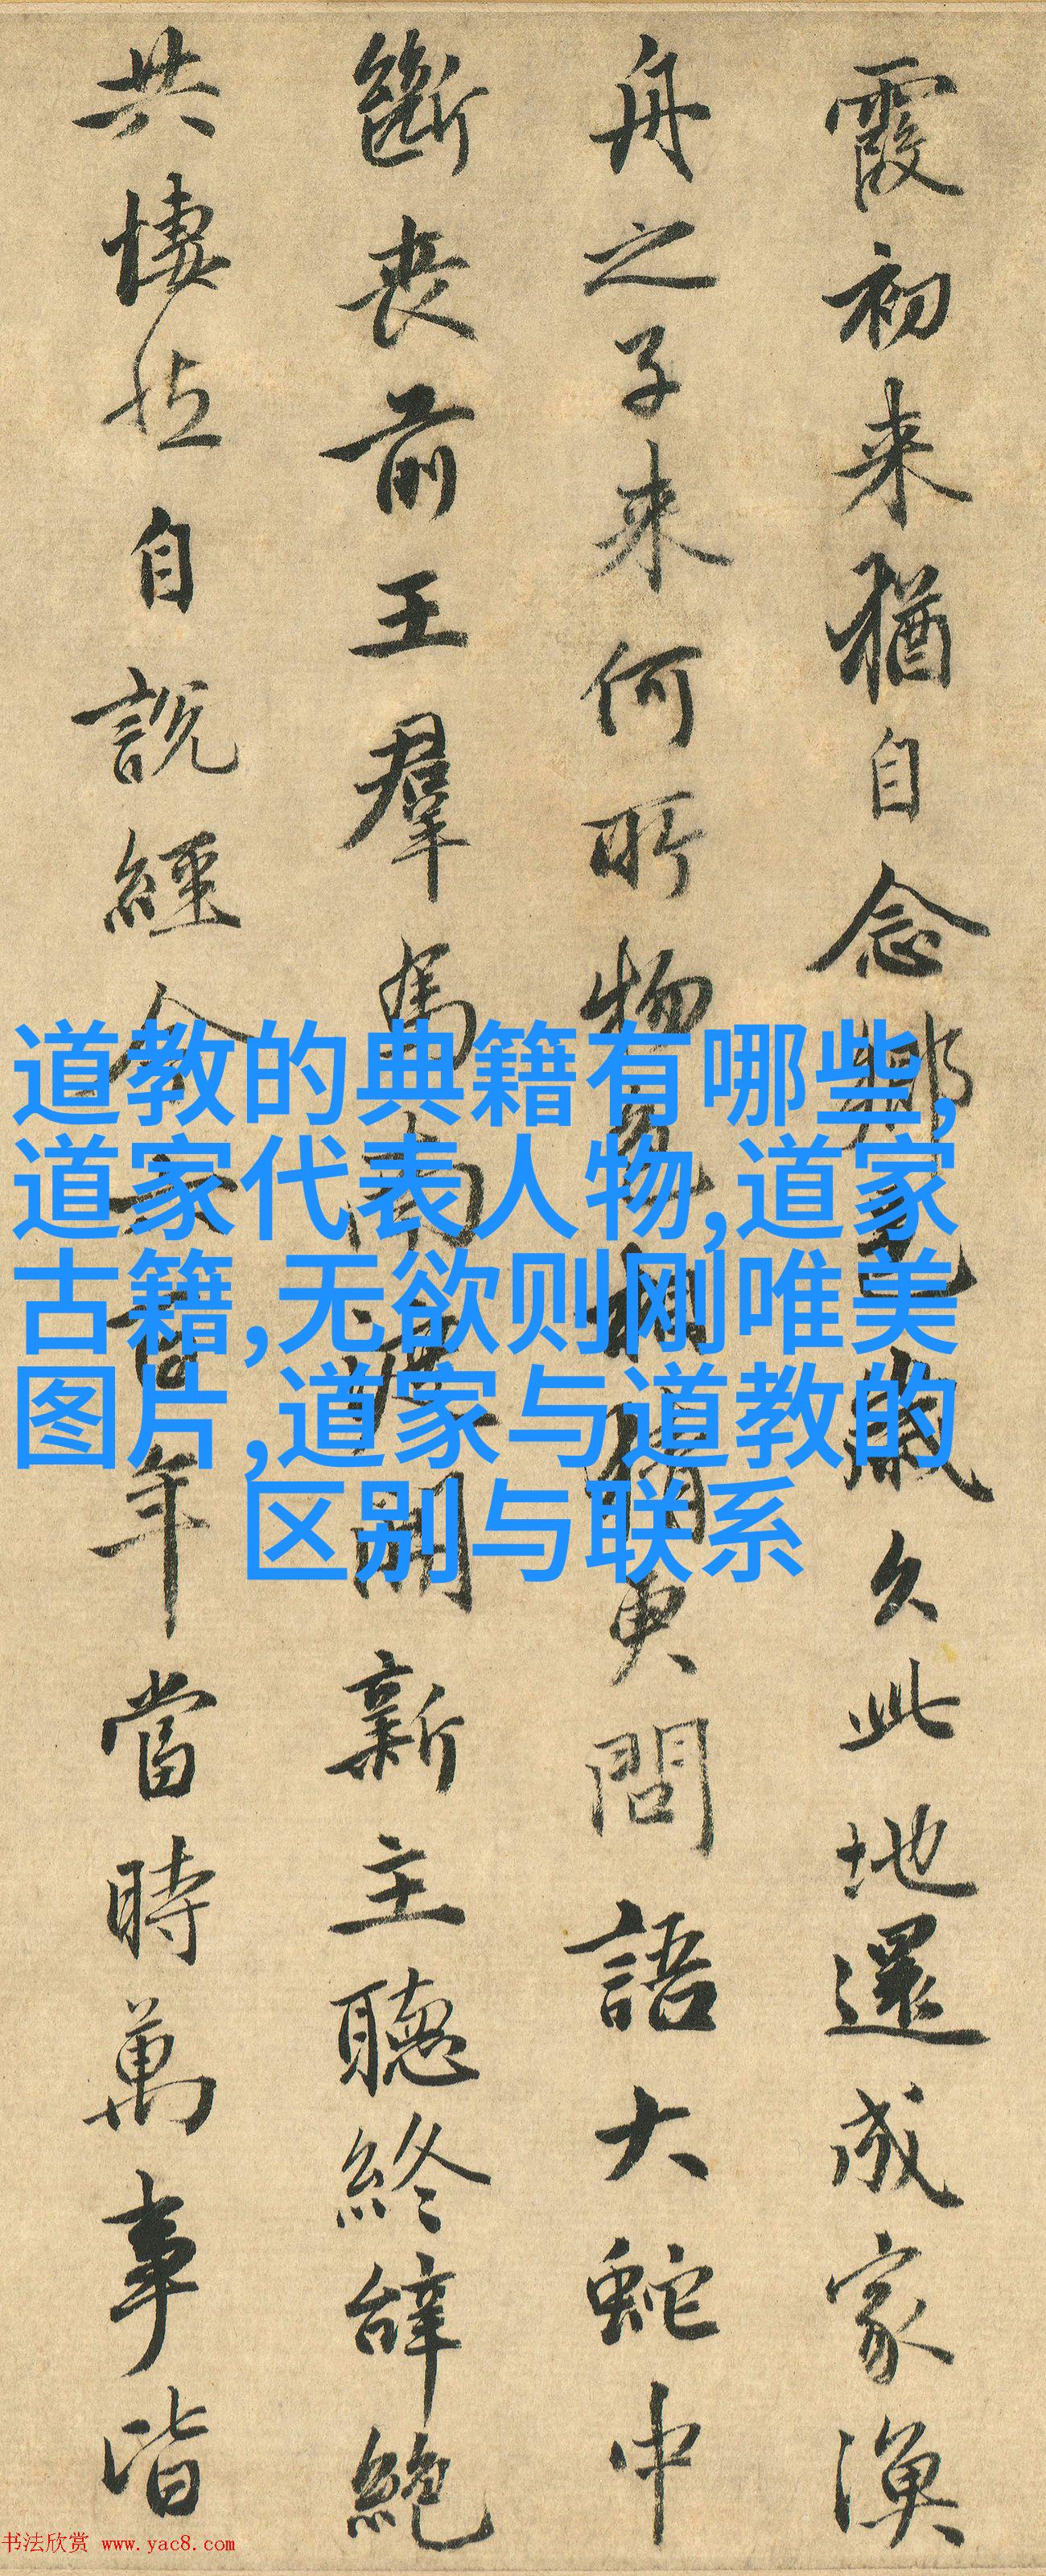 霞初来猶自念鄉邑歲久此地還成家漁
舟之子来何所物色相猜更問語大蛇中
斷喪前王羣馬南渡開新主聽終辞絶
共悽然自說經今六百年當時萬事皆
道教的典籍有哪些,
道家代表人物,道家
古籍,无欲则刚唯美
图片,道家与道教的
区别与联系
书法欣赏 www.yac8.com